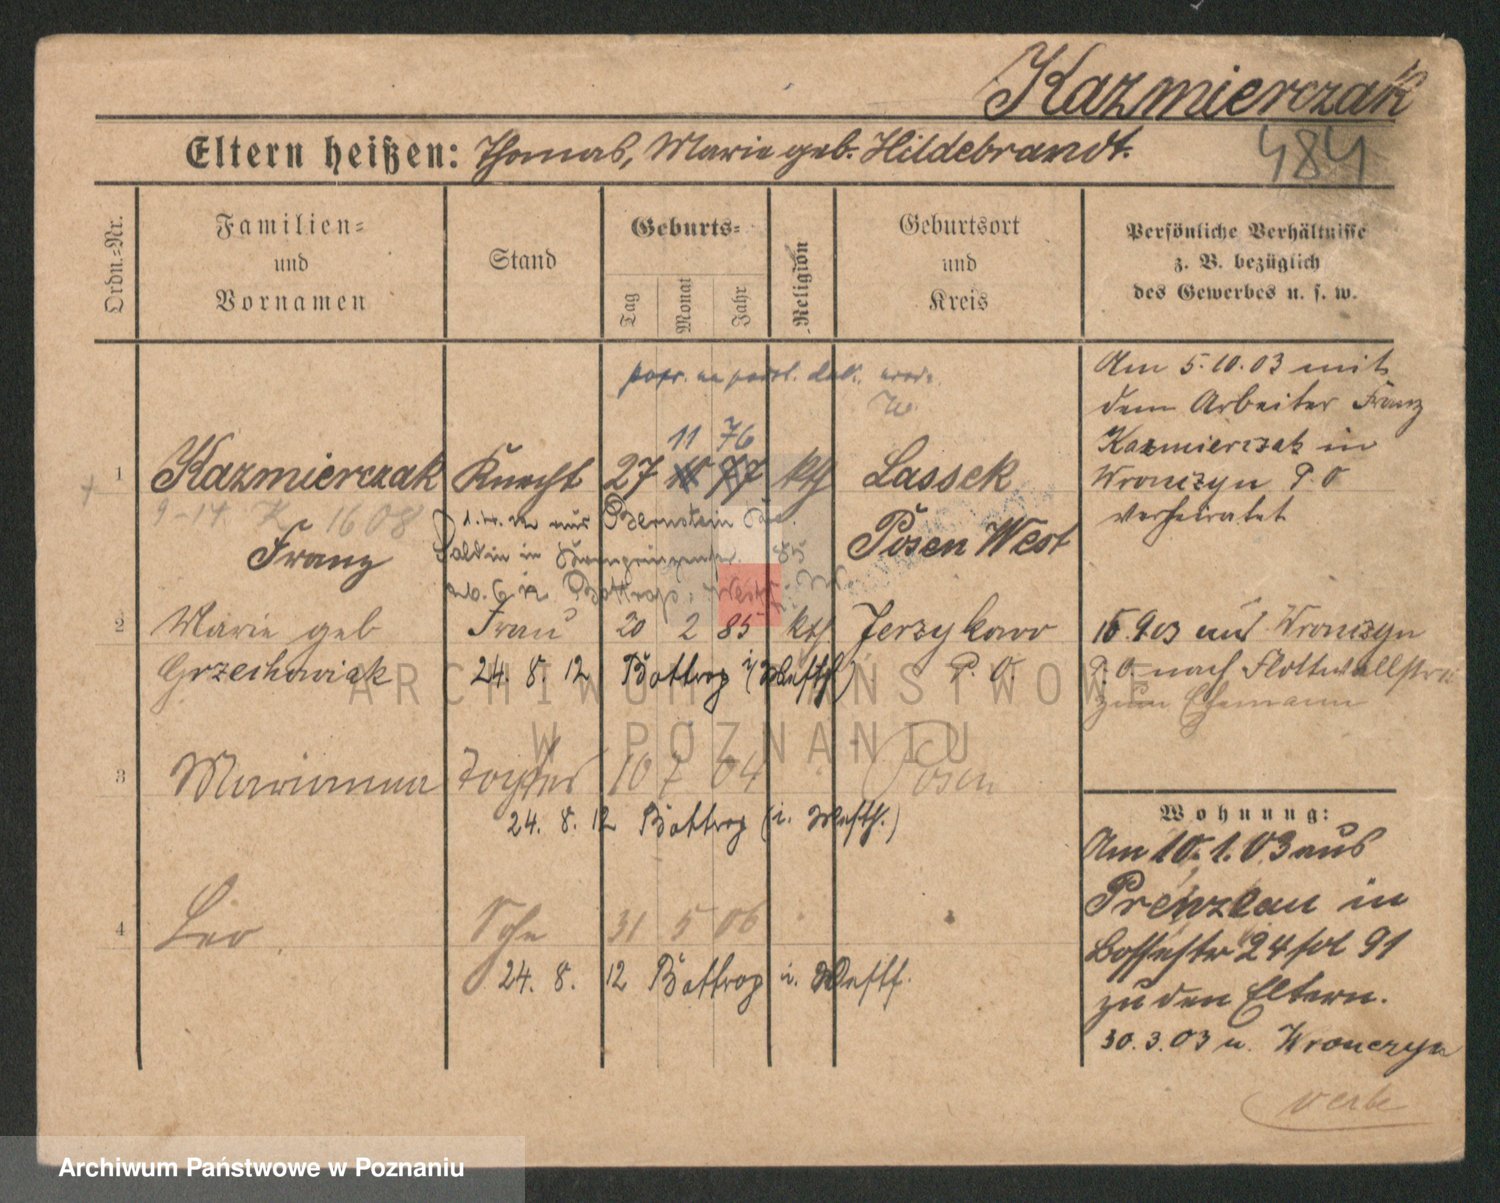 Kazmierczak
Eltern heißen: Thomas, Marie geb. Hildebrandt.
484
Ordn.-Nr.
Familien- und Vornamen
Stand
Geburts-
Tag
Monat
Jahr
Religion
Geburtsort und Kreis
Persönliche Verhältnisse z. B. bezüglich des Gewerbes u. s. w.
11 76
1 Kazmierczak Knecht 27 10 77 kth Lassek
9-14 K 1608
Franz
Posen West
Am 5.10.03 mit
dem Arbeiter Franz
Kazmierczak in
Wronczyn P. O
verheiratet
2 Marie geb Frau 20 2 85 kth Jerzykowo
Grzechowiak 24. 8. 12 Bottrop (i/Westf.) P. O.
15.9.03 aus Wronczyn
P. O. nach Flottwellstr
zum Ehemann
3 Marianna Tochter 10 7 04 Posen
24. 8. 12 Bottrop (i. Westf.)
4 Leo Sohn 31 5 06
24. 8. 12 Bottrop i. Westf.
Wohnung:
Am 10.1.03 aus
Prenzlau in
24 91
zu den Eltern.
30.3.03 n. Wronczyn
ARCHIWUM PAŃSTWOWE
W POZNANIU
Archiwum Państwowe w Poznaniu